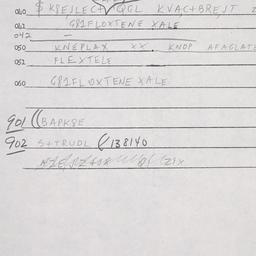 040 $ K8EJLEC+ QGL KVAC+BREJT
041 G81FLOXTENE XALE
042 —
050 KNEPLAX XX. KNOP AFAGLAT
052 FLEXTELE
060 G81FLOXTENE XALE.
901 ((BAPK8E
902 S+TRUDL (/138140